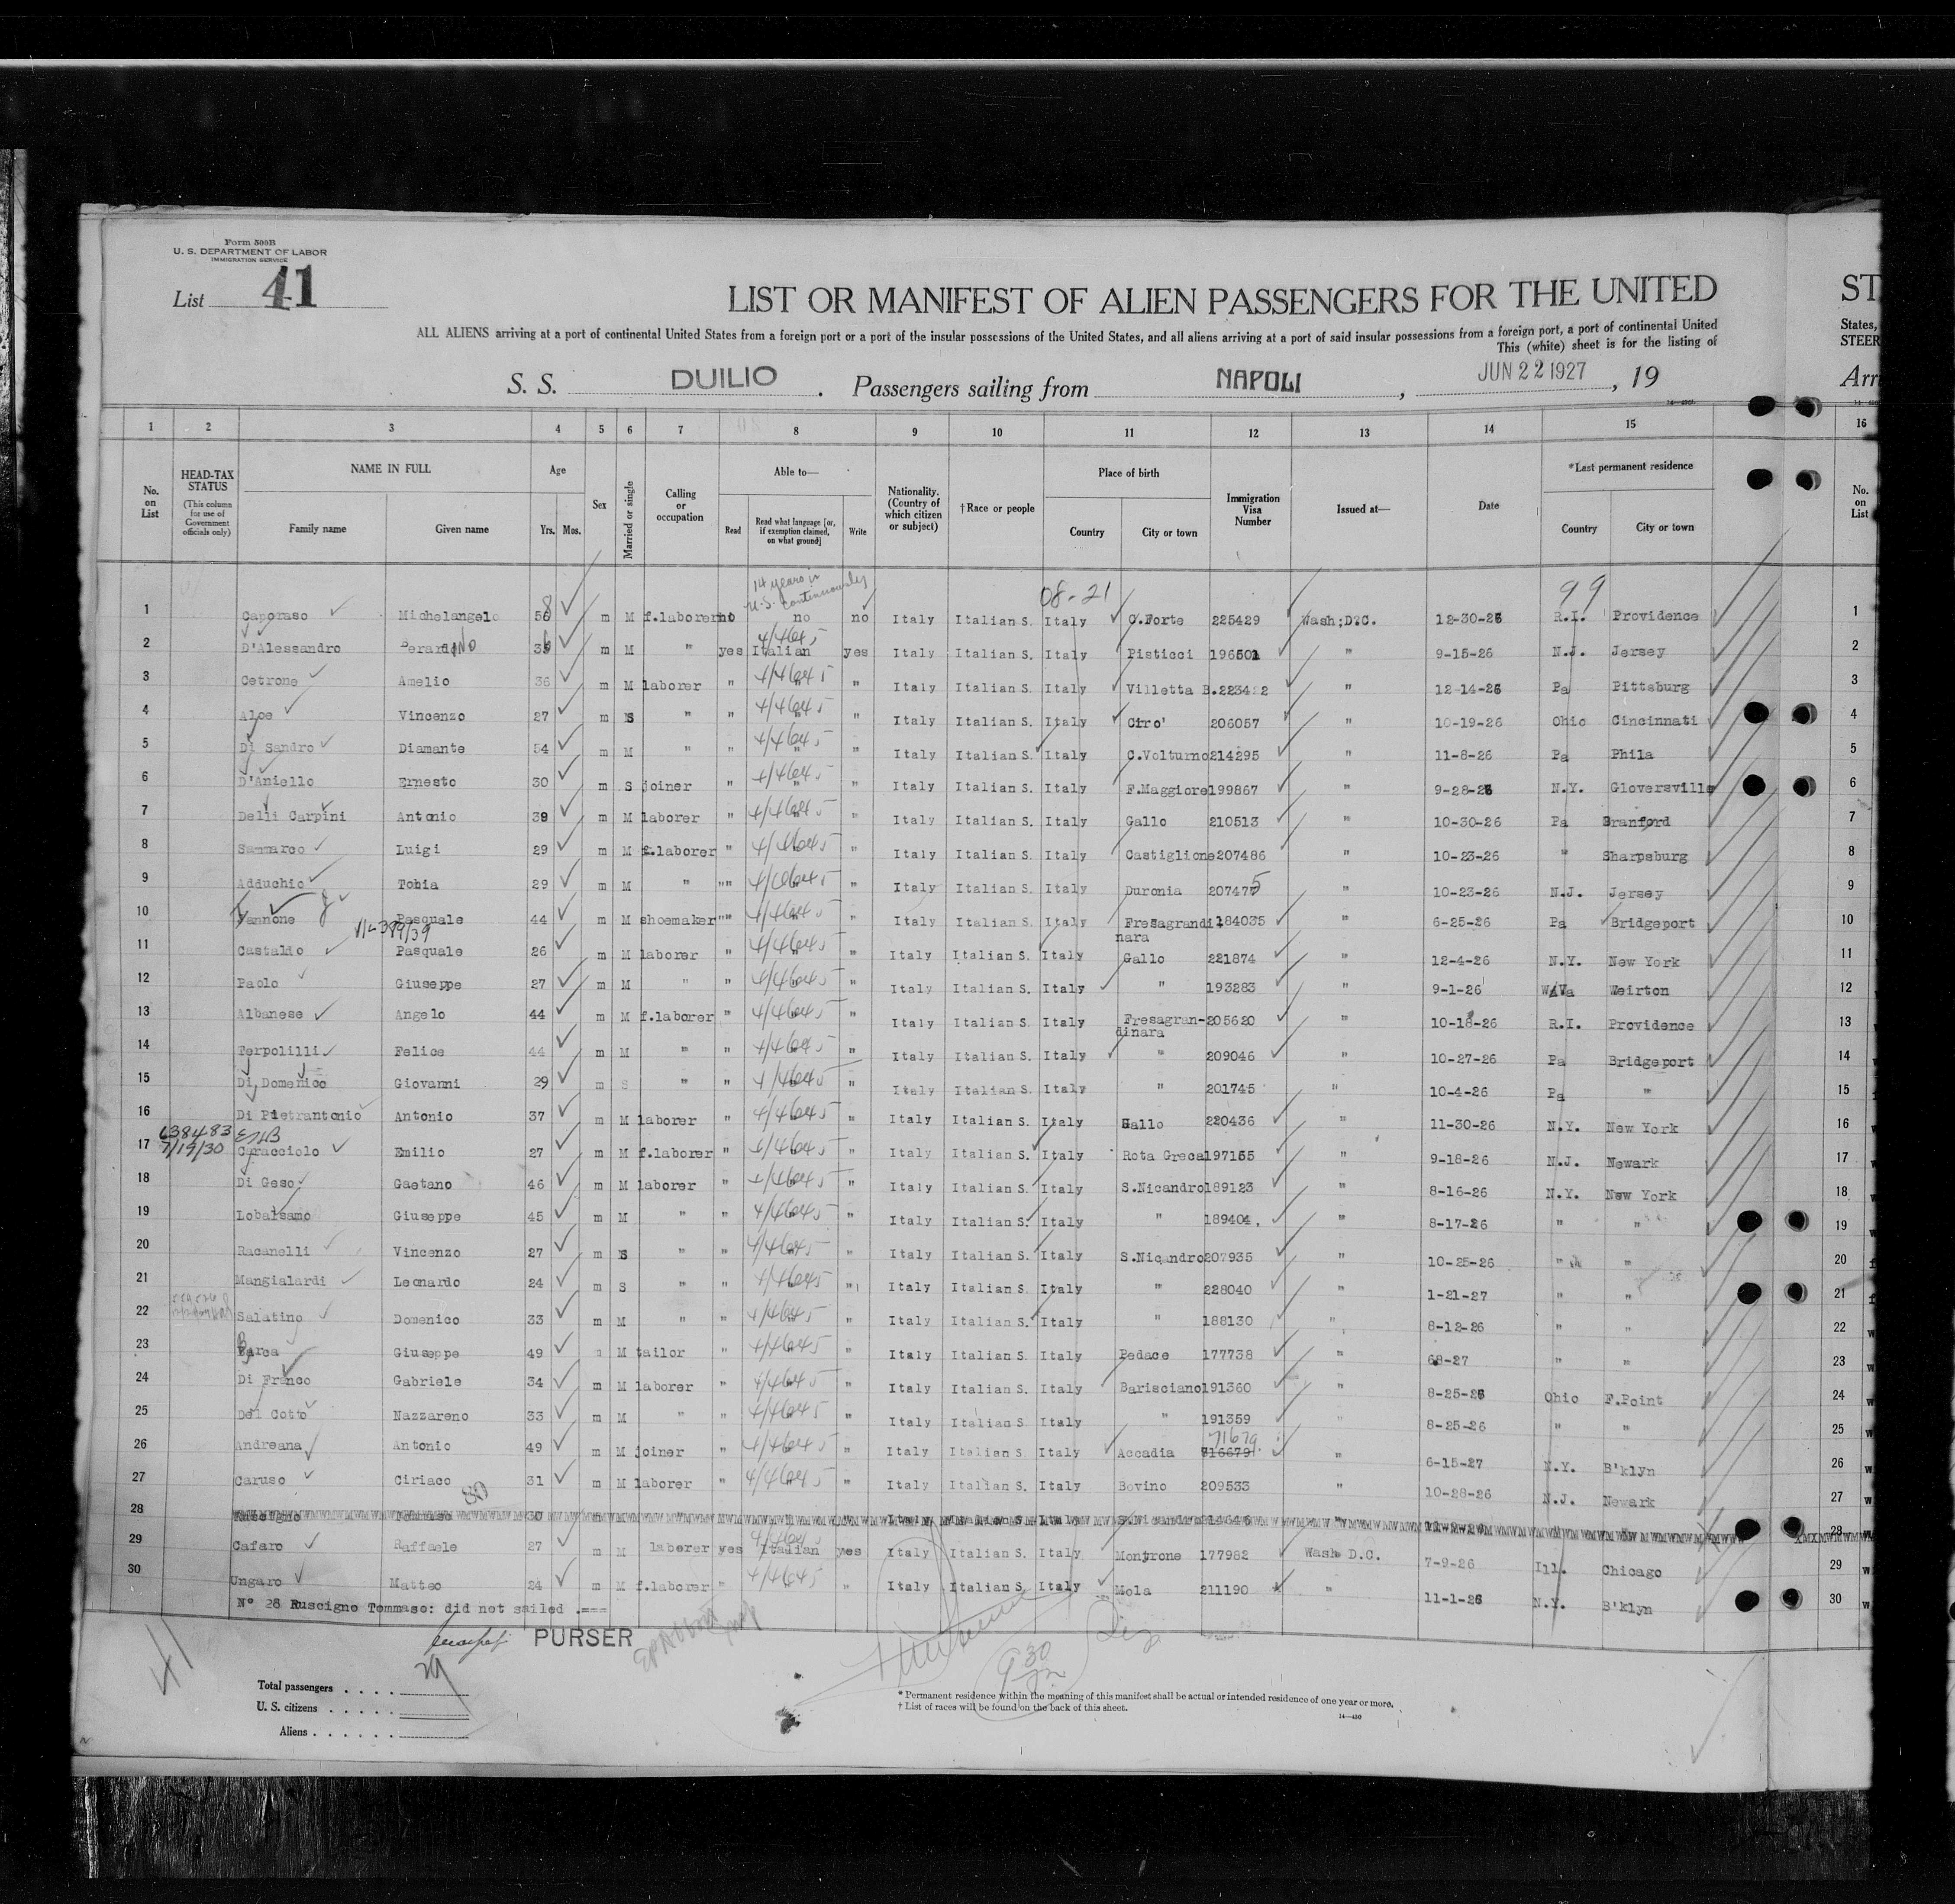 Form 500B
U. S. DEPARTMENT OF LABOR
IMMIGRATION SERVICE
List 41
LIST OR MANIFEST OF ALIEN PASSENGERS FOR THE UNITED
ST
ALL ALIENS arriving at a port of continental United States from a foreign port or a port of the insular possessions of the United States, and all aliens arriving at a port of said insular possessions from a foreign port, a port of continental United
States,
This (white) sheet is for the listing of
STEER
S. S. DUILIO . Passengers sailing from NAPOLI , JUN 22 1927 , 19
Arri
1 2 3 4 5 6 7 8 9 10 11 12 13 14 15 16
No. on List
HEAD-TAX STATUS
(This column for use of Government officials only)
NAME IN FULL
Family name Given name
Age
Yrs. Mos.
Sex
Married or single
Calling or occupation
Able to—
Read
Read what language [or, if exemption claimed, on what ground]
Write
Nationality. (Country of which citizen or subject)
†Race or people
Place of birth
Country City or town
Immigration Visa Number
Issued at—
Date
*Last permanent residence
Country City or town
No. on List
14 years in
U.S. continuously
08-21
99
1 Caporaso Michelangelo 58 m M f.laborer no no no Italy Italian S. Italy C.Forte 225429 Wash;D.C. 12-30-26 R.I. Providence 1
2 D'Alessandro 36 m M " yes Italian yes Italy Italian S. Italy Pisticci " 9-15-26 N.J. Jersey 2
3 Cetrone Amelio 36 m M laborer " " " Italy Italian S. Italy Villetta B. " 12-14-26 Pa Pittsburg 3
4 Aloe Vincenzo 27 m S " " " " Italy Italian S. Italy Ciro' 206057 " 10-19-26 Ohio Cincinnati 4
5 Di Sandro Diamante 54 m M " " " " Italy Italian S. Italy C.Volturno 214295 " 11-8-26 Pa Phila 5
6 D'Aniello Ernesto 30 m S joiner " " " Italy Italian S. Italy F.Maggiore 199867 " 9-28-26 N.Y. Gloversville 6
7 Delli Carpini Antonio 39 m M laborer " " " Italy Italian S. Italy Gallo 210513 " 10-30-26 Pa Branford 7
8 Sammarco Luigi 29 m M f.laborer " " " Italy Italian S. Italy Castiglione 207486 " 10-23-26 " Sharpsburg 8
9 Adduchio Tobia 29 m M " " " " Italy Italian S. Italy Duronia 207475 " 10-23-26 N.J. Jersey 9
10 Iannone Pasquale 44 m M shoemaker " " " Italy Italian S. Italy Fresagrandi- 184035 " 6-25-26 Pa Bridgeport 10
nara
11 Castaldo Pasquale 26 m M laborer " " " Italy Italian S. Italy Gallo 221874 " 12-4-26 N.Y. New York 11
12 Paolo Giuseppe 27 m M " " " " Italy Italian S. Italy " 193283 " 9-1-26 W.Va Weirton 12
13 Albanese Angelo 44 m M f.laborer " " " Italy Italian S. Italy Fresagran- 205620 " 10-18-26 R.I. Providence 13
dinara
14 Terpolilli Felice 44 m M " " " " Italy Italian S. Italy " 209046 " 10-27-26 Pa Bridgeport 14
15 Di Domenico Giovanni 29 m S " " " " Italy Italian S. Italy " 201745 " 10-4-26 Pa " 15
16 Di Pietrantonio Antonio 37 m M laborer " " " Italy Italian S. Italy Gallo 220436 " 11-30-26 N.Y. New York 16
638483
7/19/30
17 Caracciolo Emilio 27 m M f.laborer " " " Italy Italian S. Italy Rota Greca 197155 " 9-18-26 N.J. Newark 17
18 Di Geso Gaetano 46 m M laborer " " " Italy Italian S. Italy S.Nicandro 189123 " 8-16-26 N.Y. New York 18
19 Lobalsamo Giuseppe 45 m M " " " " Italy Italian S. Italy " 189404 " 8-17-26 " " 19
20 Racanelli Vincenzo 27 m S " " " " Italy Italian S. Italy S.Nicandro 207935 " 10-25-26 " " 20
21 Mangialardi Leonardo 24 m S " " " " Italy Italian S. Italy " 228040 " 1-21-27 " " 21
22 Salatino Domenico 33 m M " " " " Italy Italian S. Italy " 188130 " 8-12-26 " " 22
23 Barca Giuseppe 49 m M tailor " " " Italy Italian S. Italy Pedace 177738 " " " 23
24 Di Franco Gabriele 34 m M laborer " " " Italy Italian S. Italy Barisciano 191360 " 8-25-26 Ohio F.Point 24
25 Del Cotto Nazzareno 33 m M " " " " Italy Italian S. Italy " 191359 " 8-25-26 " " 25
26 Andreana Antonio 49 m M joiner " " " Italy Italian S. Italy Accadia 716679 " 6-15-27 N.Y. B'klyn 26
27 Caruso Ciriaco 31 m M laborer " " " Italy Italian S. Italy Bovino 209533 " 10-28-26 N.J. Newark 27
28 Ruscigno Tommaso 30 Italy Italian S. Italy S.Nicandro 28
29 Cafaro Raffaele 27 m M laborer yes Italian yes Italy Italian S. Italy Montrone 177982 Wash D.C. 7-9-26 Ill. Chicago 29
30 Ungaro Matteo 24 m M f.laborer " " " Italy Italian S. Italy Mola 211190 " 11-1-26 N.Y. B'klyn 30
N° 28 Ruscigno Tommaso: did not sailed .===
PURSER
41
Total passengers . . . . 29
U. S. citizens . . . . .
Aliens . . . . . .
* Permanent residence within the meaning of this manifest shall be actual or intended residence of one year or more.
† List of races will be found on the back of this sheet.
14—430